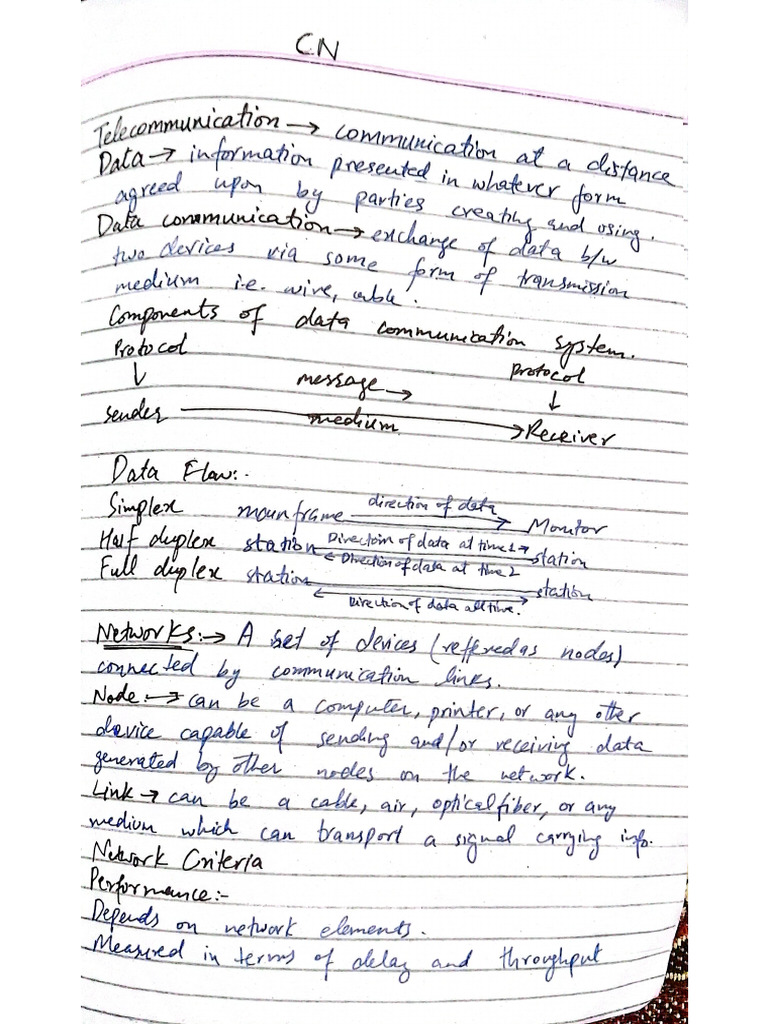 CN
Telecommunication → communication at a distance
Data → information presented in whatever form
agreed upon by parties creating and using.
Data communication → exchange of data b/w
two devices via some form of transmission
medium i.e. wire, cable.
Components of data communication system.
Protocol
Protocol
↓ message → ↓
sender medium → Receiver
Data Flow:-
Simplex mainframe direction of data → Monitor
Half duplex station Direction of data at time 1 → station
← Direction of data at time 2
Full duplex station station
Direction of data all time.
Networks:→ A set of devices (reffered as nodes)
connected by communication links.
Node:→ can be a computer, printer, or any other
device capable of sending and/or receiving data
generated by other nodes on the network.
Link → can be a cable, air, optical fiber, or any
medium which can transport a signal carrying info.
Network Criteria
Performance:-
Depends on network elements.
Measured in terms of delay and throughput